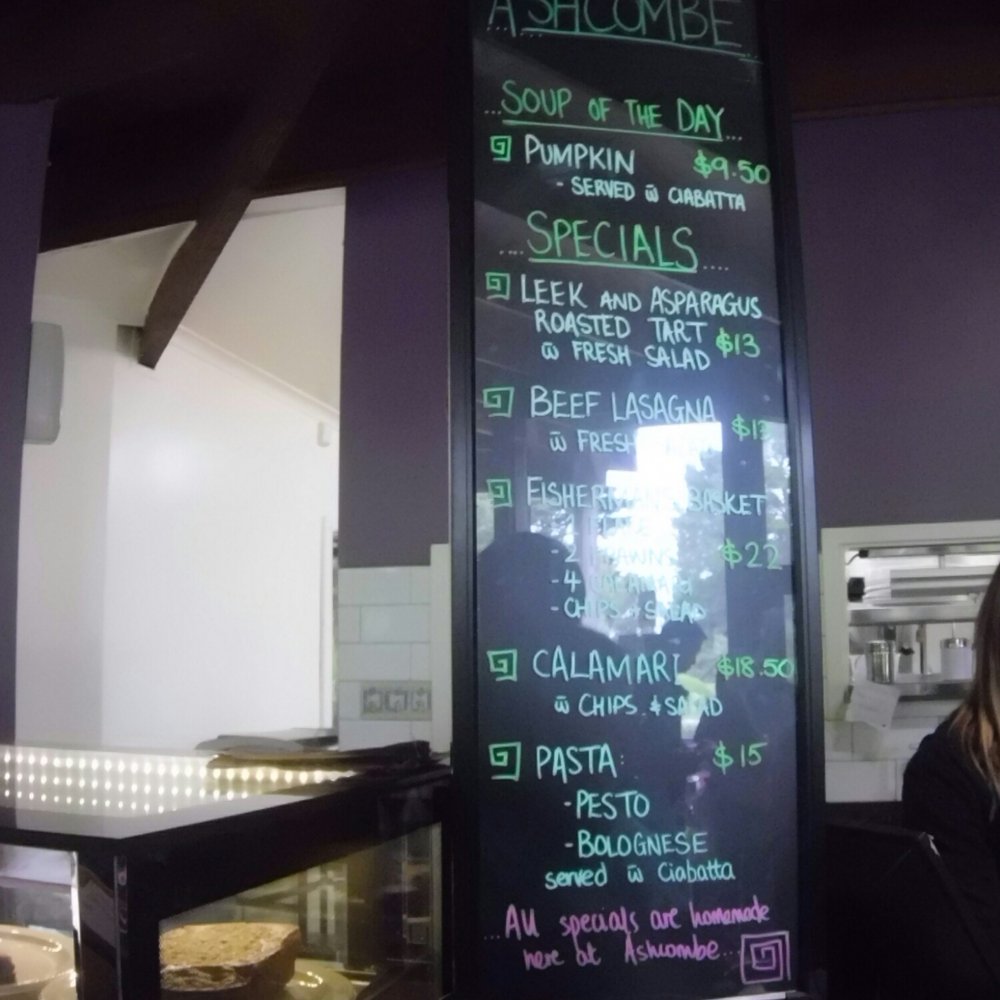 ASHCOMBE
...SOUP OF THE DAY...
PUMPKIN $9.50
- SERVED w̄ CIABATTA
....SPECIALS....
LEEK AND ASPARAGUS
ROASTED TART $13
w̄ FRESH SALAD
BEEF LASAGNA
w̄ FRESH
FISHERMANS BASKET
- 2 PRAWNS $22
- 4 CALAMARI
- CHIPS + SALAD
CALAMARI $18.50
w̄ CHIPS & SALAD
PASTA: $15
- PESTO
- BOLOGNESE
served w̄ Ciabatta
...All specials are homemade
here at Ashcombe...